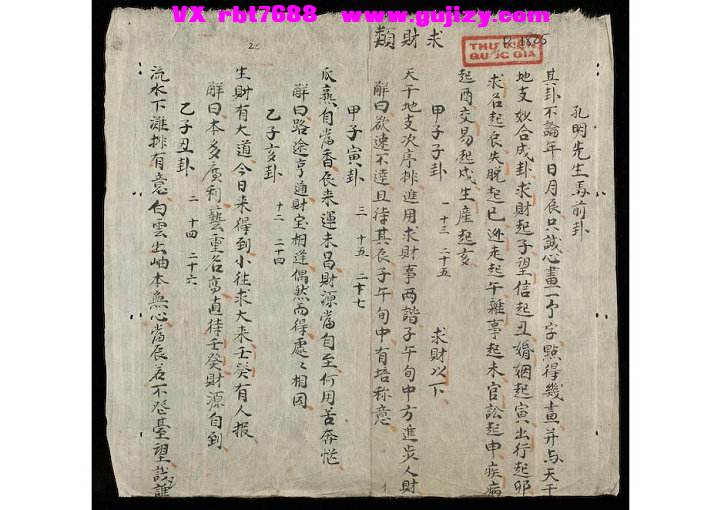 VX rbt7688 www.gujizy.com
求財類
THƯ VIỆN
QUỐC GIA
孔明先生馬前卦
其卦不論年日月辰只誠心畫一字點得幾畫并与天干
地支妙合成卦求財起子望信起丑婚姻起寅出行起卯
求名起辰失脫起巳逊走起午雜事起未官訟起申疾病
起酉交易起戌生産起亥
甲子子卦 一 十三 二十五 求財以下
天干地支次序排進用求財事两諧子午旬中方進步人財
解曰欲速不達且待其辰子午旬中有培称意
甲子寅卦 三 十五 二十七
瓜熟自當香辰来運未吕財源當自至何用苦奔忙
解曰路途亨通財宝相逢偶然而得處〻相同
乙子亥卦 十二 二十四
生財有大道今日来得到小往求大来壬癸有人报
解曰本多廣利藝重名高直待壬癸財源自到
乙子丑卦 二 十四 二十六
流水下灘排有意白雲出岫本無心當辰若不登臺望誰